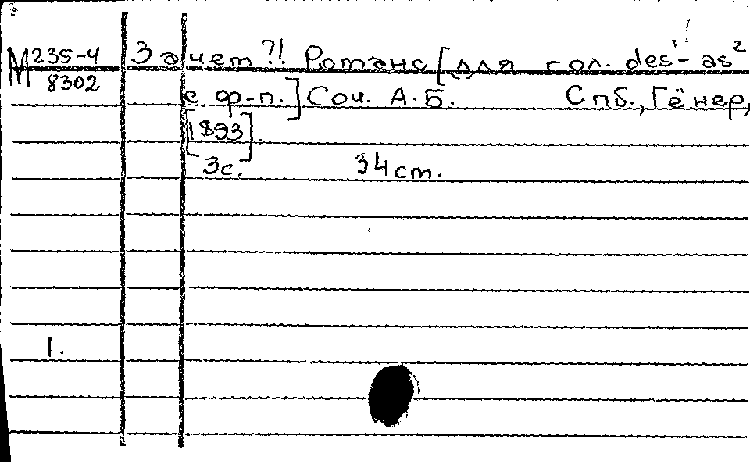 М 235-4 Зачем?! Романс [для гол. des¹-as²
8302 с ф-п.] Соч. А.Б. Спб., Гёнер,
[1893].
3с. 34 cm.
1.